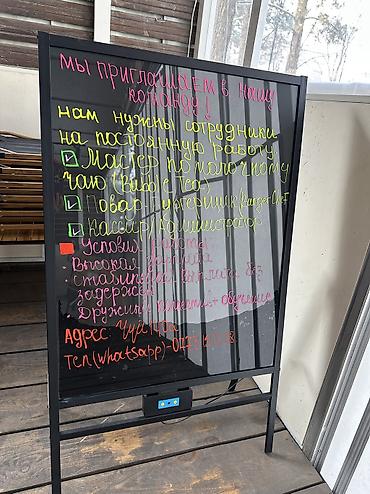 МЫ ПРИГЛАШАЕМ В нашу
команду!
нам нужны сотрудники
на постоянную работу
Мастер по молочному
чаю (Bubble Tea)
Повар
Кассир/Администратор
Условия работы
Высокая
без
задержек
Дружный + обучение
Адрес
Тел (whatsapp)-